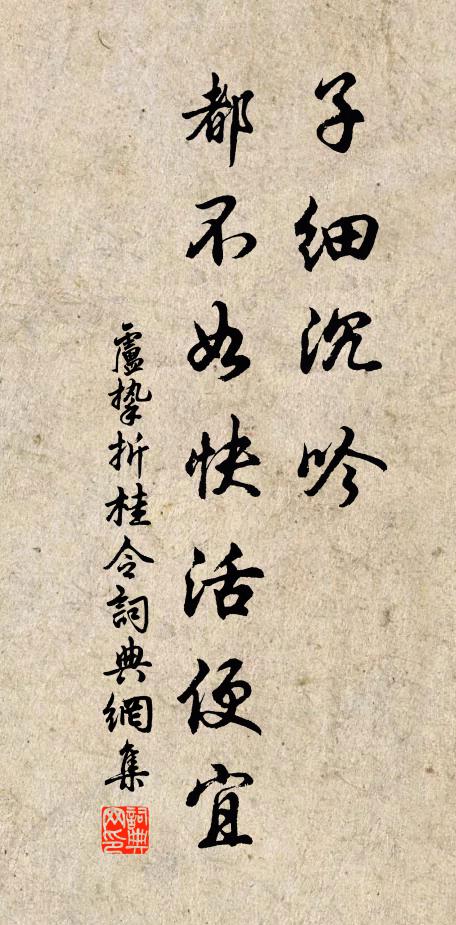 子细沉吟
都不如快活便宜
盧摯折桂令詞典網集
詞典
网印